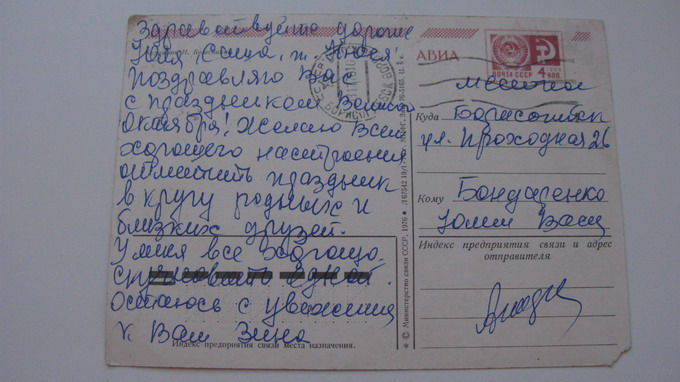 Здравствуйте дорогие
Юля Саша,
Поздравляю Вас
с праздником Велик
Октября! Желаю Всем
хорошего настроени
отметить праздник
в кругу родных и
близких друзей.
У меня все хорошо.
Остаюсь с уважением
к Вам Зина
Индекс предприятия связи места назначения.
© Министерство связи СССР, 1976
АВИА
ПОЧТА СССР
4 коп
местное
Куда Борисоглебск
ул. Проходная 26
Кому Бондаренко
Юлии Васи
Индекс предприятия связи и адрес
отправителя